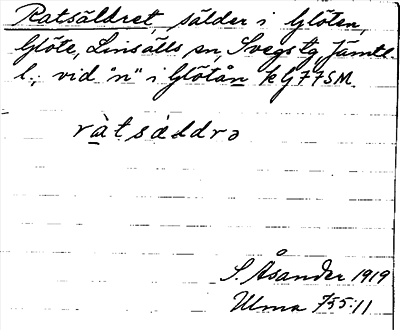 Ratsäldret, sälder i Glöten,
Glöte, Linsälls sn, Svegs tg, Jämtl.
l., vid "n" i Glötån kG77SM.
ràtsélldrə
S. Åsander 1919
Ulma 755:11